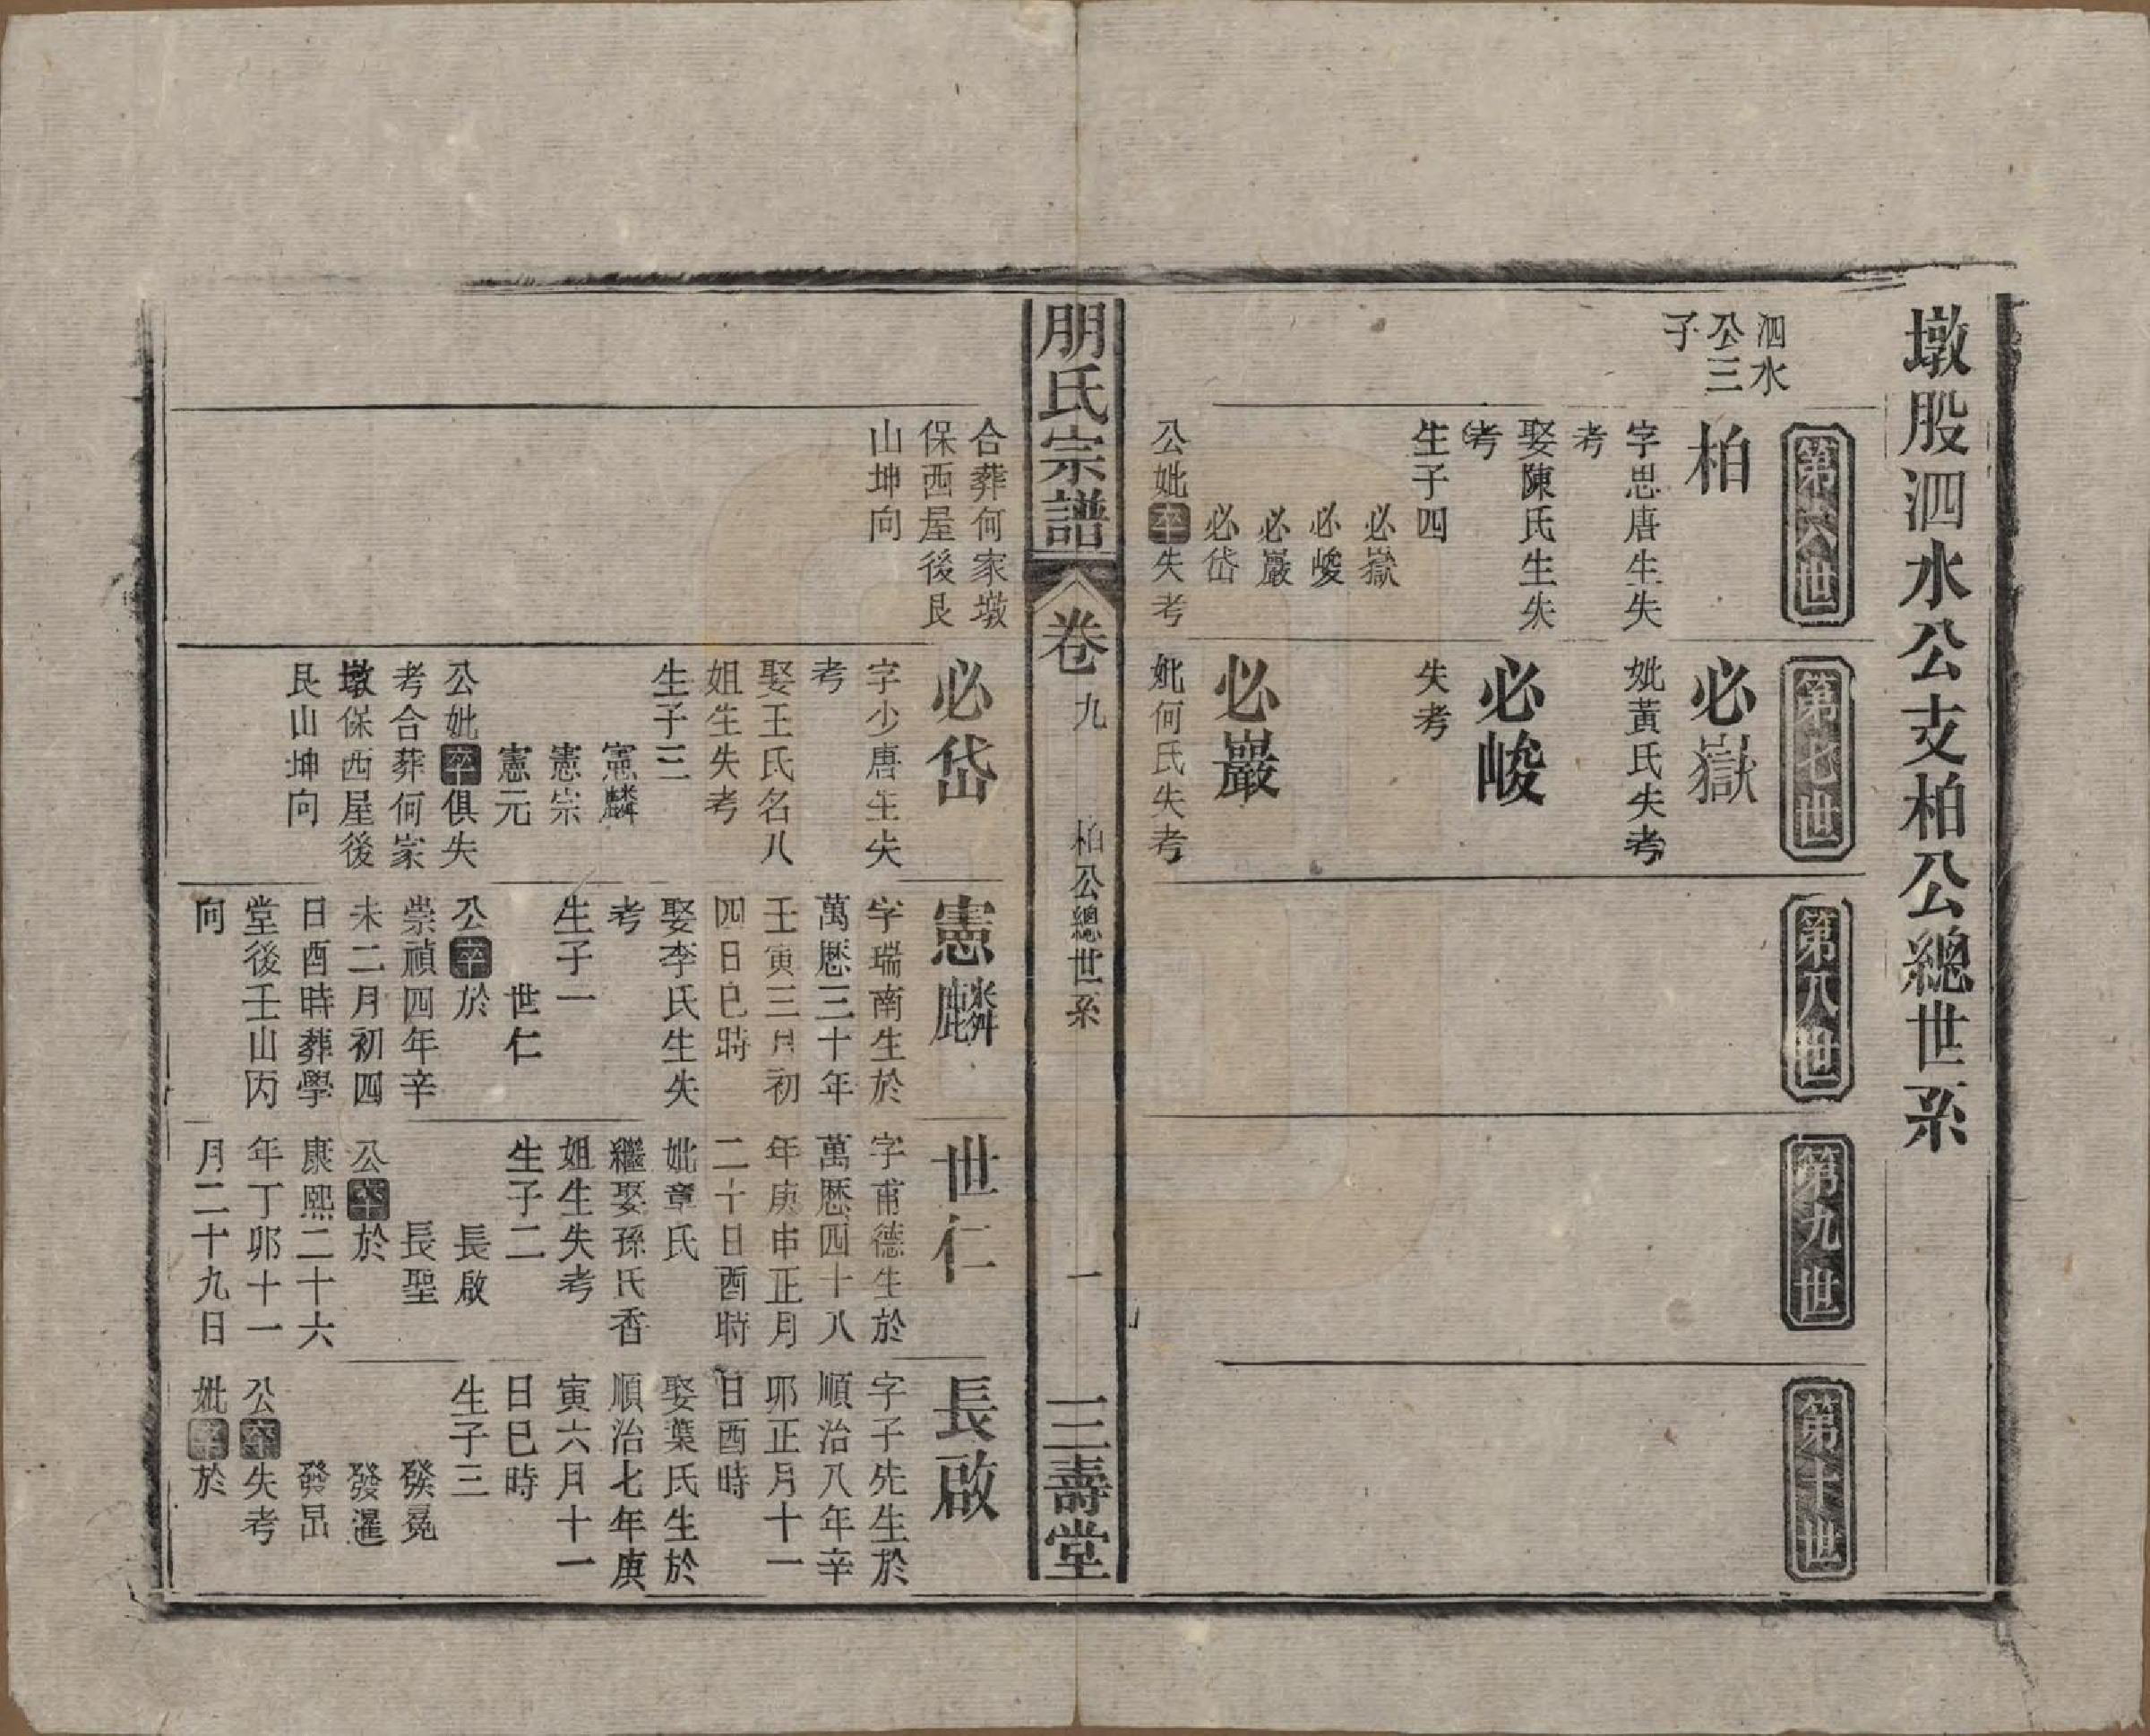 墩股泗水公支柏公總世系
泗水
公三
子
第六世
柏
字思唐生失
考
娶陳氏生失
考
生子四
必嶽
必峻
必巖
必岱
公妣卒失考
第七世
必嶽
妣黃氏失考
必峻
失考
必巖
妣何氏失考
第八世
第九世
第十世
朋氏宗譜
卷九
柏公總世系
一
三壽堂
合葬何家墩
保西屋後艮
山坤向
必岱
字少唐生失
考
娶王氏名八
姐生失考
生子三
憲麟
憲宗
憲元
公妣卒俱失
考合葬何家
墩保西屋後
艮山坤向
憲麟
字瑞南生於
萬歷三十年
壬寅三月初
四日巳時
娶李氏生失
考
生子一
世仁
公卒於
崇禎四年辛
未二月初四
日酉時葬學
堂後壬山丙
向
世仁
字甫德生於
萬歷四十八
年庚申正月
二十日酉時
妣章氏
繼娶孫氏香
姐生失考
生子二
長啟
長聖
公卒於
康熙二十六
年丁卯十一
月二十九日
長啟
字子先生於
順治八年辛
卯正月十一
日酉時
娶葉氏生於
順治七年庚
寅六月十一
日巳時
生子三
發冕
發暹
發昂
公卒失考
妣卒於